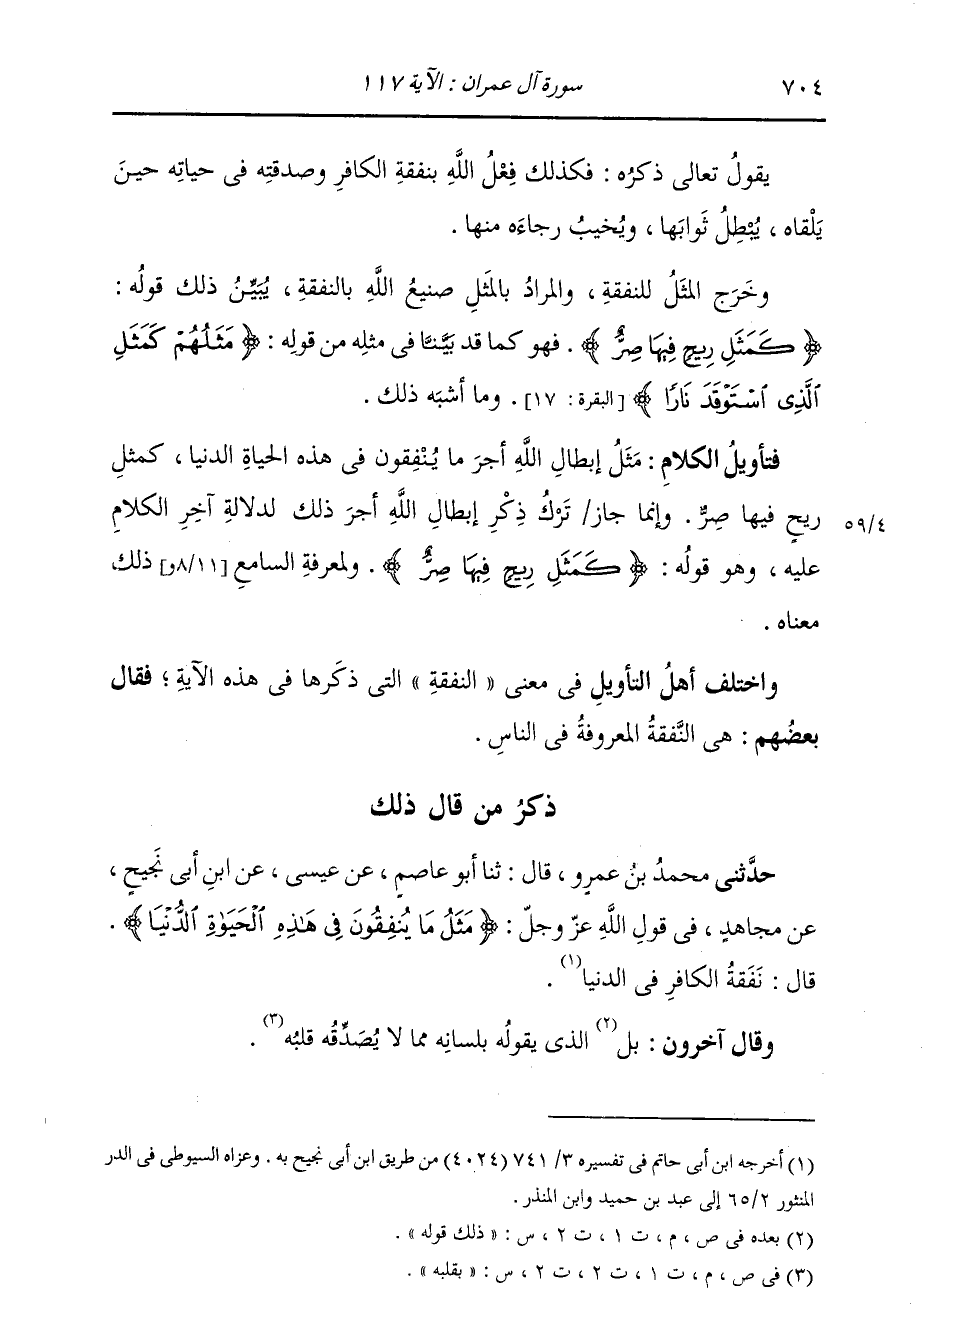 ٧٠٤
سورة آل عمران : الآية ١١٧
يقولُ تعالى ذكرُه : فكذلك فِعْلُ اللَّهِ بنفقةِ الكافرِ وصدقتِه فى حياتِه حينَ
يَلْقاه ، يُبْطِلُ ثَوابَها ، ويُخيبُ رجاءَه منها .
وخَرَج المثَلُ للنفقةِ ، والمرادُ بالمثَلِ صنيعُ اللَّهِ بالنفقةِ ، يُبَيِّنُ ذلك قولُه :
﴿ كَمَثَلِ رِيحٍ فِيهَا صِرٌّ ﴾ . فهو كما قد بَيَّنَّا فى مثلِه من قولِه : ﴿ مَثَلُهُمْ كَمَثَلِ
ٱلَّذِى ٱسْتَوْقَدَ نَارًا ﴾ [البقرة : ١٧] . وما أشبَه ذلك .
فتأويلُ الكلامِ : مَثَلُ إبطالِ اللَّهِ أجرَ ما يُنْفِقون فى هذه الحياةِ الدنيا ، كمثلِ
ريحٍ فيها صِرٌّ . وإنما جاز/ تَرْكُ ذِكْرِ إبطالِ اللَّهِ أجرَ ذلك لدلالةِ آخِرِ الكلامِ
٥٩/٤
عليه ، وهو قولُه : ﴿ كَمَثَلِ رِيحٍ فِيهَا صِرٌّ ﴾ . ولمعرفةِ السامعِ [٨/١١و] ذلك
معناه .
واختلف أهلُ التأويلِ فى معنى « النفقةِ » التى ذكَرها فى هذه الآيةِ ؛ فقال
بعضُهم : هى النَّفقةُ المعروفةُ فى الناسِ .
ذكرُ من قال ذلك
حدَّثنى محمدُ بنُ عمرٍو ، قال : ثنا أبو عاصمٍ ، عن عيسى ، عن ابنِ أبى نَجيحٍ ،
عن مجاهدٍ ، فى قولِ اللَّهِ عزّ وجلّ : ﴿ مَثَلُ مَا يُنفِقُونَ فِى هَـٰذِهِ ٱلْحَيَوٰةِ ٱلدُّنْيَا ﴾ .
قال : نَفَقةُ الكافرِ فى الدنيا(١) .
وقال آخرون : بل(٢) الذى يقولُه بلسانِه مما لا يُصَدِّقُه قلبُه(٣) .
(١) أخرجه ابن أبى حاتم فى تفسيره ٣/ ٧٤١ (٤٠٢٤) من طريق ابن أبى نجيح به . وعزاه السيوطى فى الدر
المنثور ٦٥/٢ إلى عبد بن حميد وابن المنذر .
(٢) بعده فى ص ، م ، ت ١ ، ت ٢ ، س : « ذلك قوله » .
(٣) فى ص ، م ، ت ١ ، ت ٢ ، ت ٢ ، س : « بقلبه » .